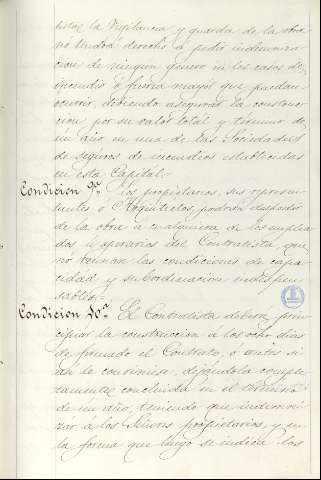 tista la Vigilancia y guarda de la obra
no tendrá derecho á pedir indemniza
cion de ningun género in los casos de
incendio ó fuerza mayor que puedan
ocurrir, debiendo asegurar la construc
cion por su valor total y término de
un año en una de las Sociedades
de seguros de incendios establecidas
en esta Capital.
Condicion 9ª. Los propietarios, sus represen
tantes ó Arquitectos, podrán despedir
de la obra á cualquiera de los emplea
dos ú operarios del Contratista, que
nó reunan las condiciones de capa
cidad y subordinacion indispen
sables.
Condicion 10ª. El Contratista deberá prin
cipiar la construccion á los ocho dias
de firmado el Contrato, ó antes si
asi le conviniese, dejándola comple
tamente concluida en el término
de un año, teniendo que indemni
zár á los Señores propietarios, y en
la forma que luego se indica los